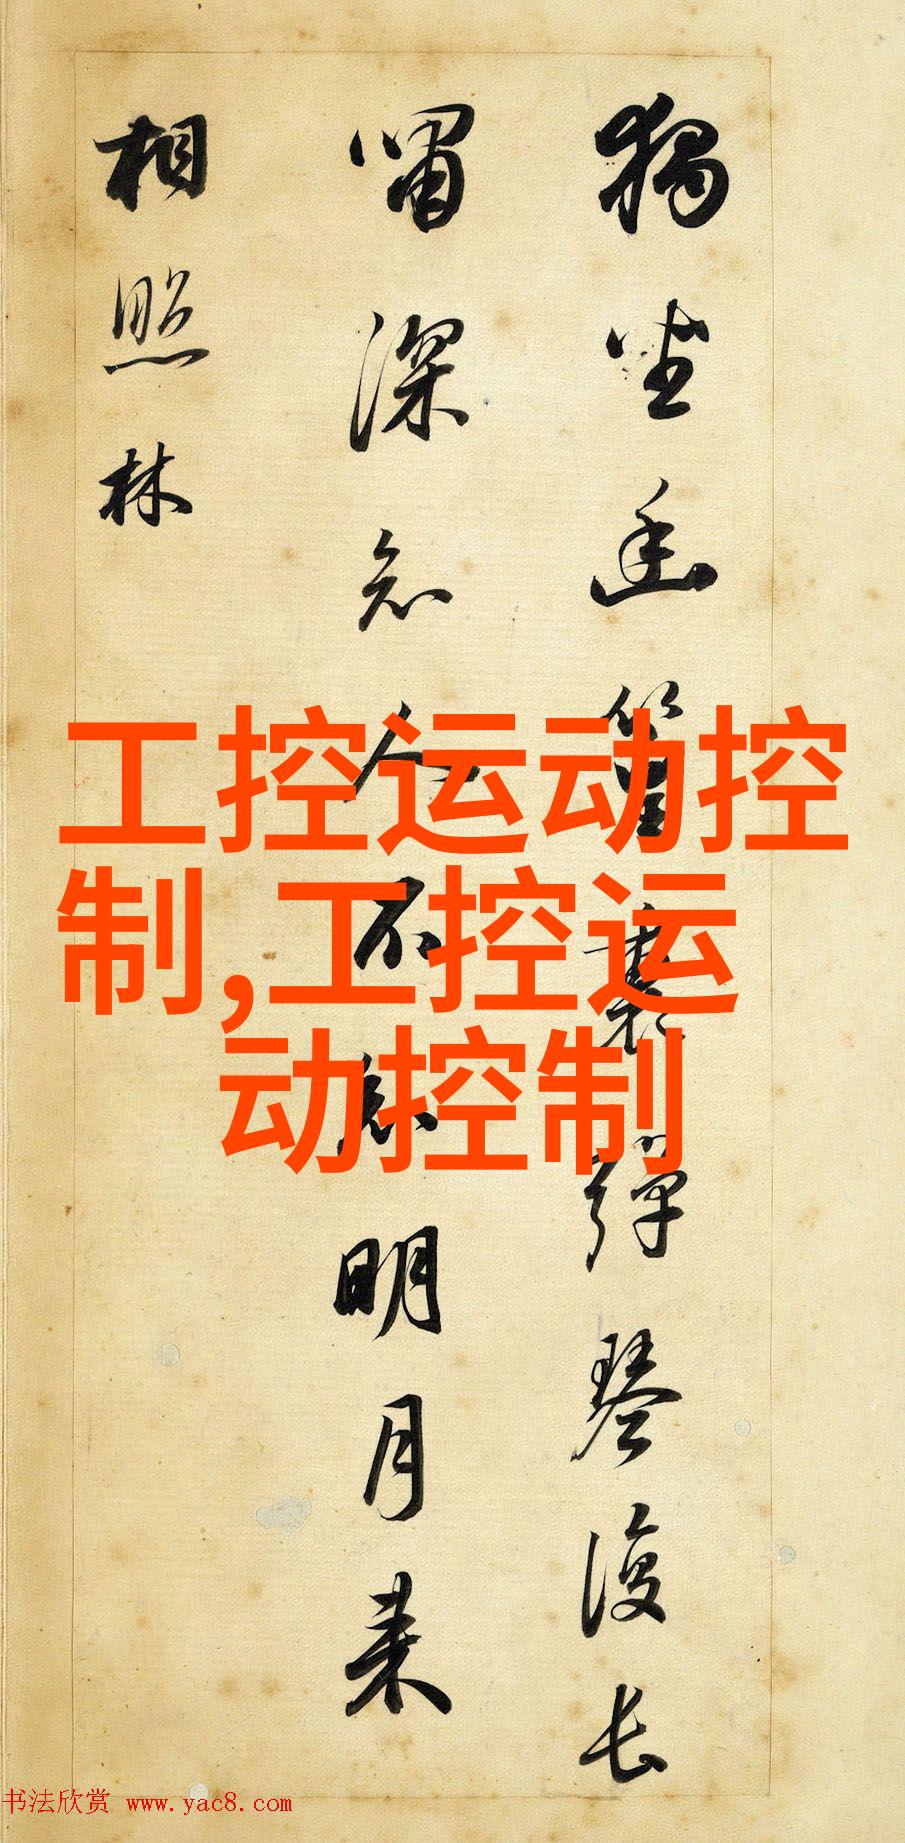 獨坐幽篁裏彈琴復長
嘯深知人不知明月来
相照林
工控运动控
制,工控运
动控制
书法欣赏 www.yac8.com